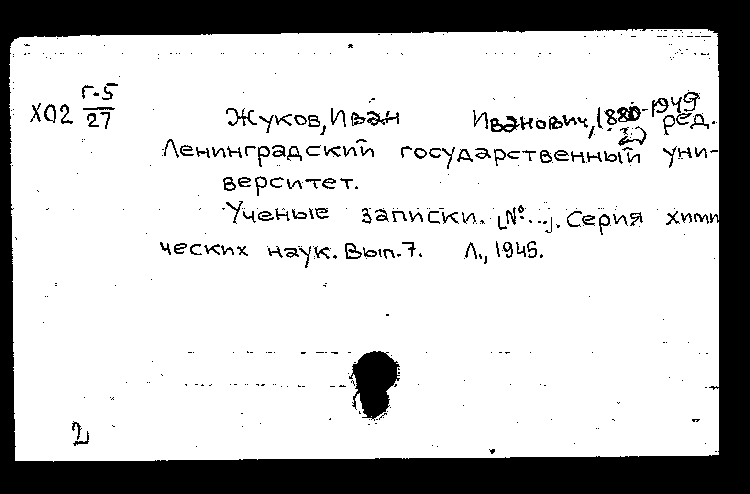 Х02 Г-5/27
Жуков, Иван Иванович, 1880-1949 ред.
Ленинградский государственный уни-
верситет.
Ученые записки. [№...]. Серия хими
ческих наук. Вып.7. Л., 1945.
2